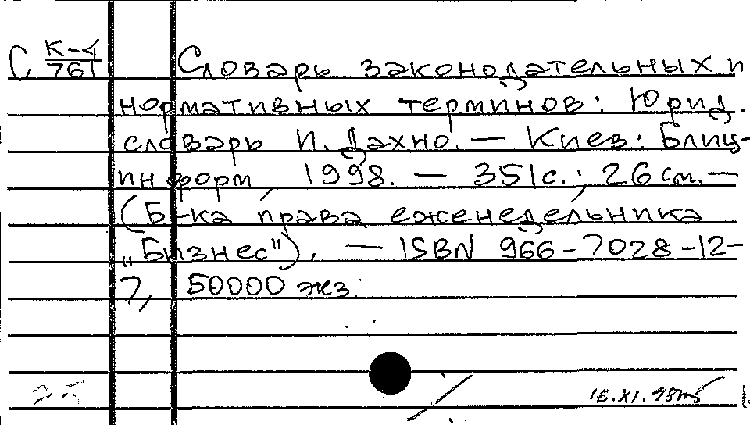 С К-4/761 Словарь законодательных и
нормативных терминов: Юрид.
словарь И. Дахно. — Киев: Блиц-
информ, 1998. — 351с.; 26 см. —
(Б-ка права еженедельника
„Бизнес"). — ISBN 966-7028-12-
7, 50000 экз.